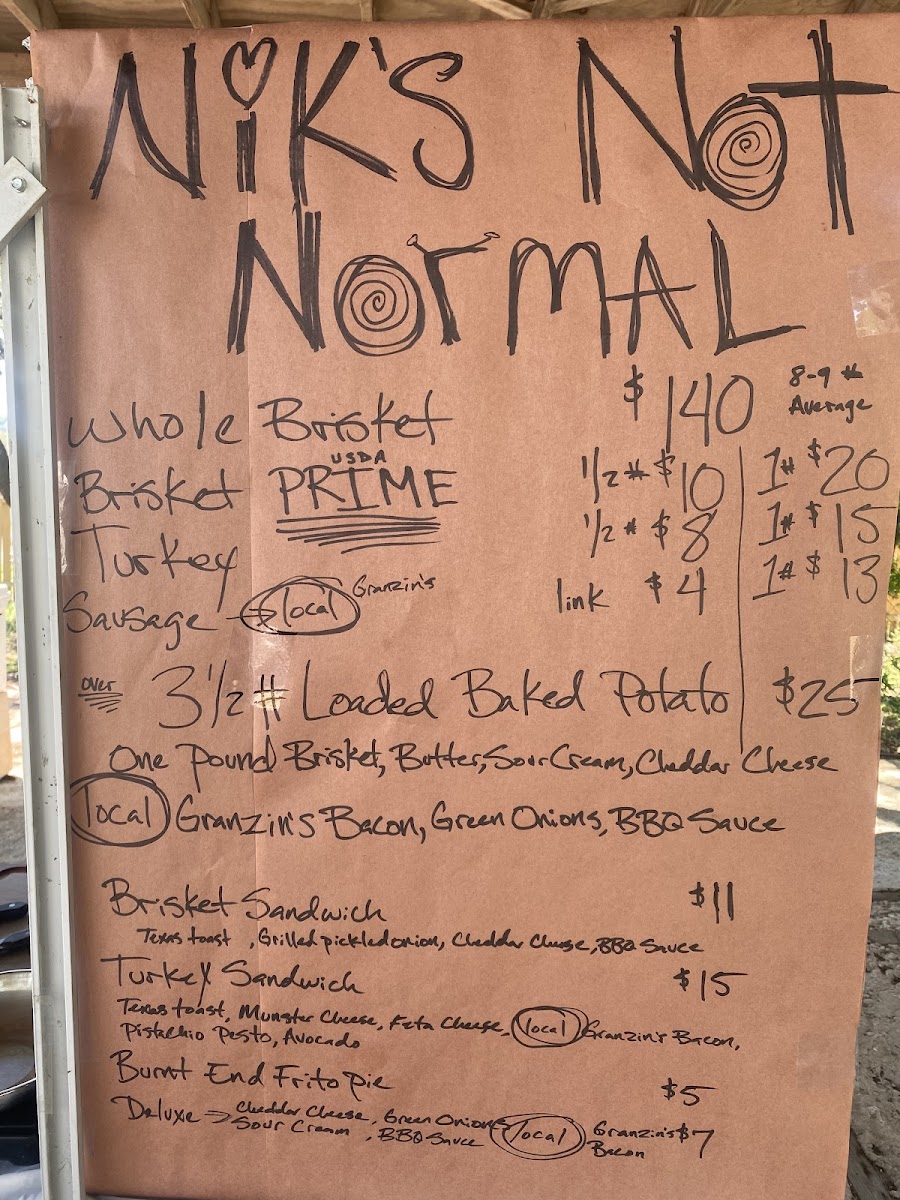 NiK'S NOT
NORMAL
Whole Brisket $140 8-9# Average
Brisket USDA PRIME 1/2# $10 1# $20
Turkey 1/2# $8 1# $15
Sausage → local Granzin's link $4 1# $13
over 3 1/2 # Loaded Baked Potato $25
One Pound Brisket, Butter, Sour Cream, Cheddar Cheese
local Granzin's Bacon, Green Onions, BBQ Sauce
Brisket Sandwich $11
Texas toast, Grilled pickled onion, Cheddar Cheese, BBQ Sauce
Turkey Sandwich $15
Texas toast, Munster Cheese, Feta Cheese, local Granzin's Bacon,
Pistachio Pesto, Avocado
Burnt End Frito pie $5
Deluxe → Cheddar Cheese, Green Onions
Sour Cream, BBQ Sauce local Granzin's Bacon $7